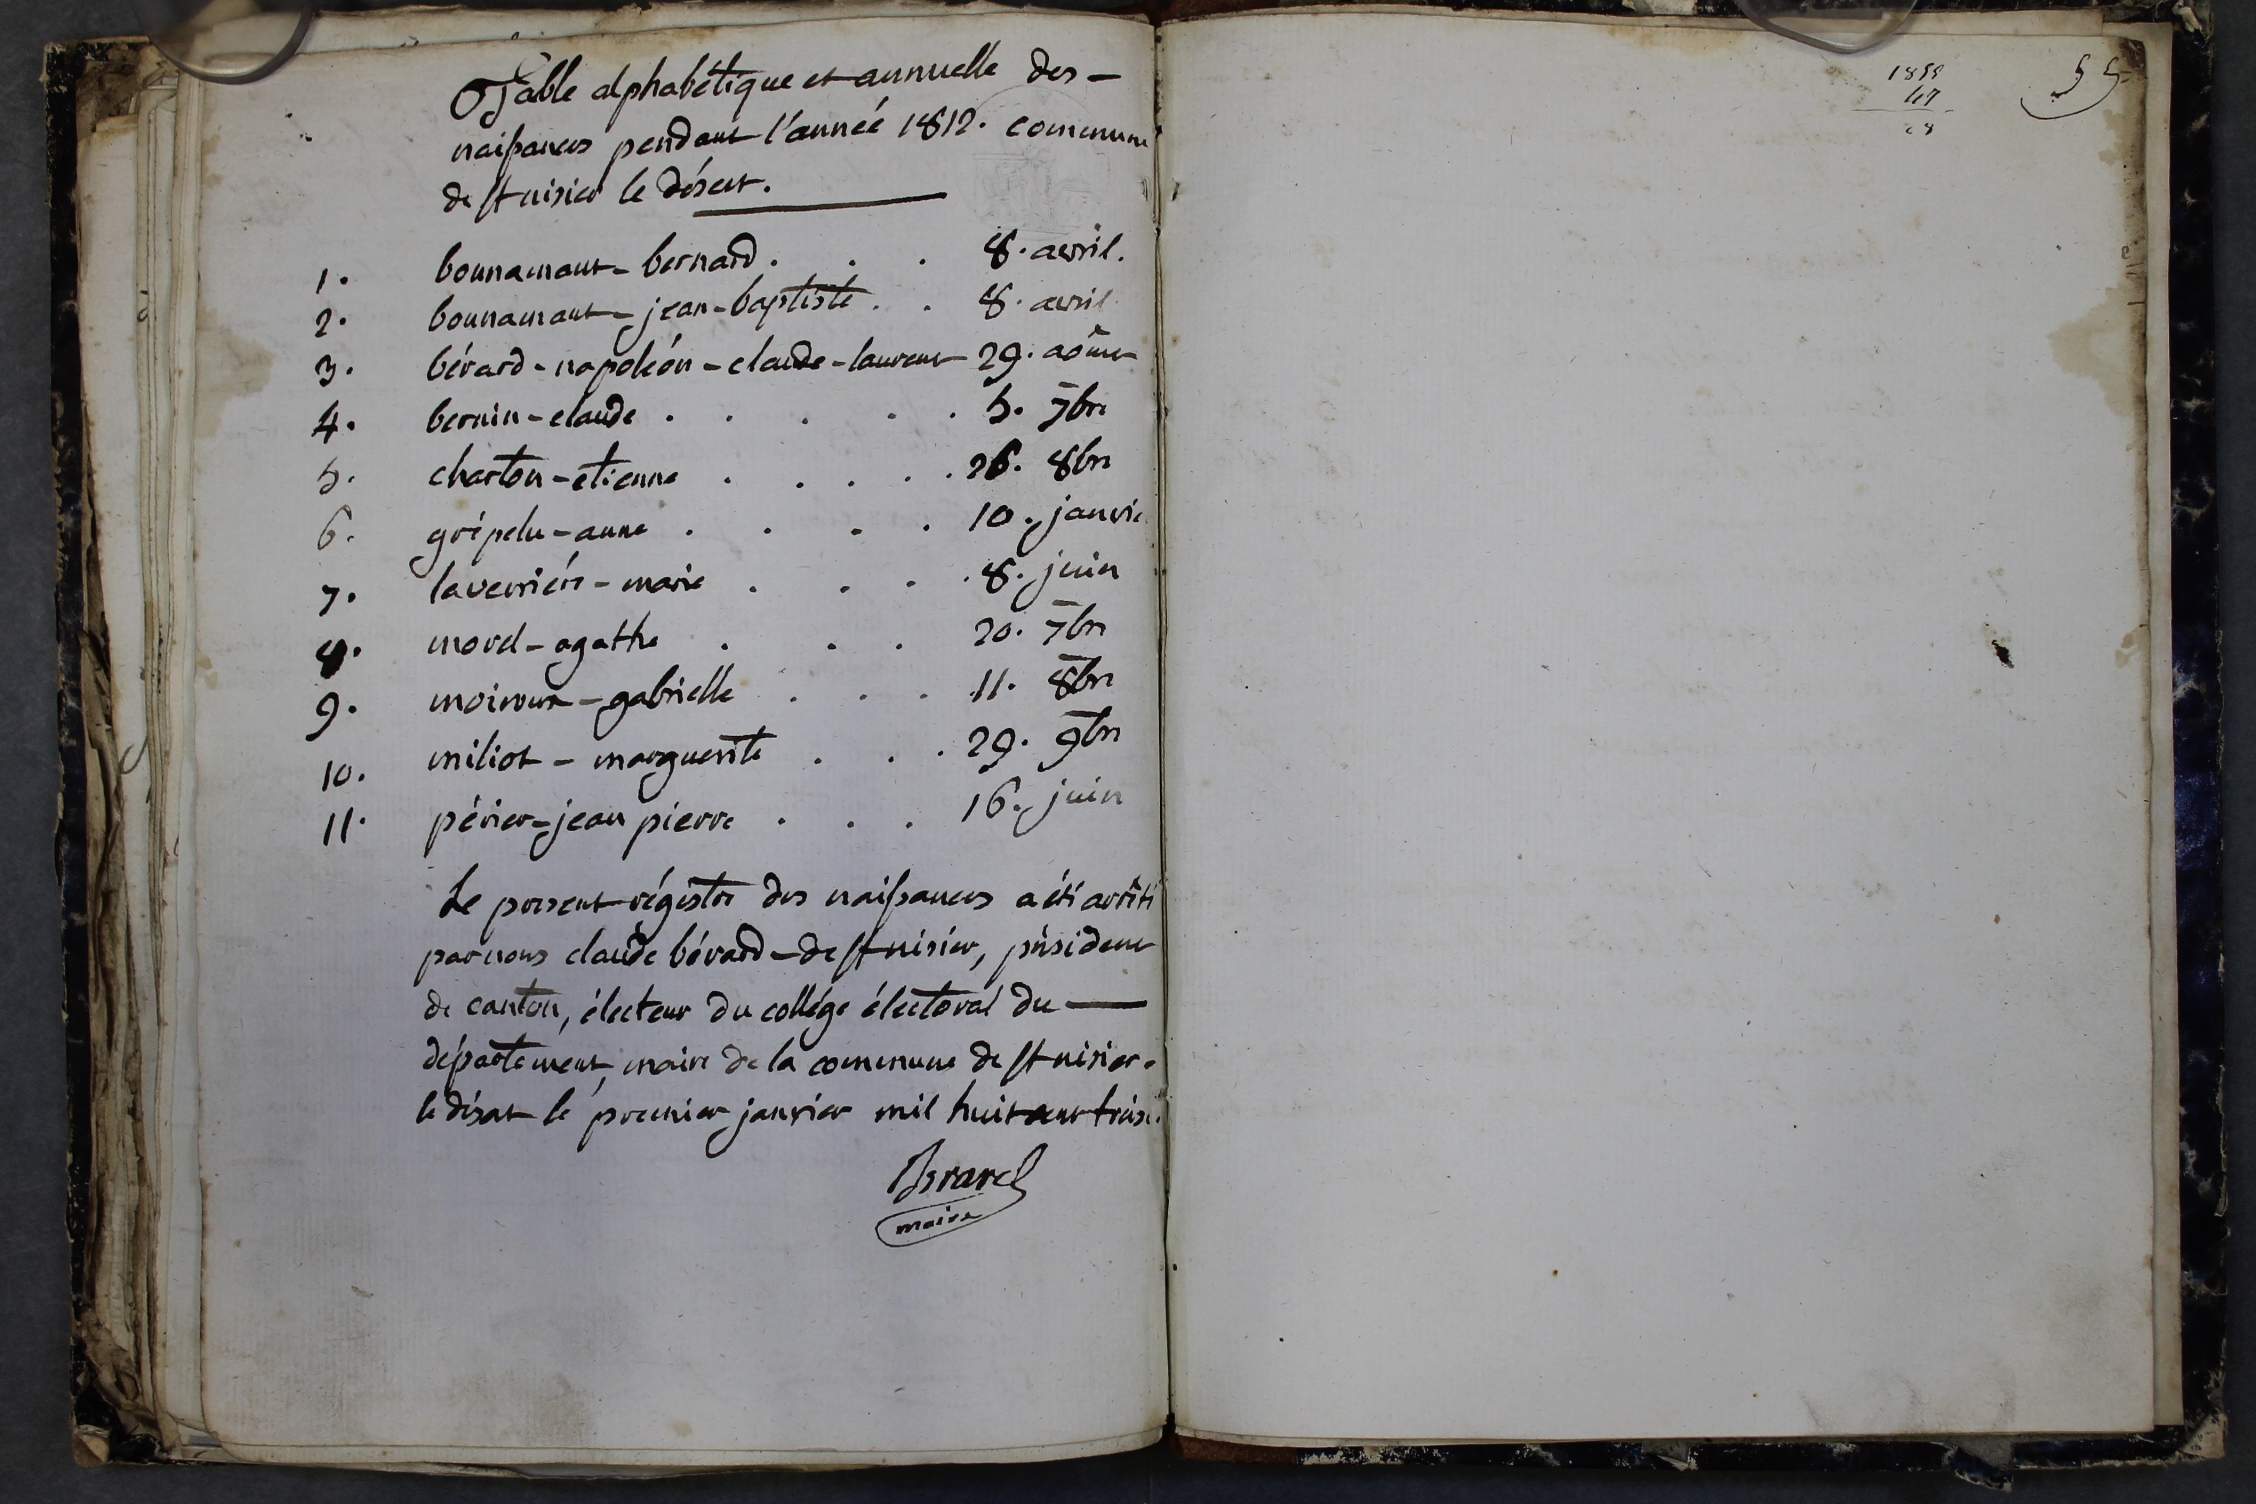 Table alphabétique et annuelle des -
naissances pendant l'année 1812. commune
de st nisier le désert.
1. bonnamant - bernard . . . 8. avril.
2. bonnamant - jean - baptiste . . 8. avril
3. bérard - napoléon - claude - laurent 29. aôust
4. bernin - claude . . . . . 5. 7bre
5. charton - etienne . . . . . 26. 8bre
6. grépelu - anne . . . . 10. janvie
7. laverrière - marie . . . 8. juin
8. morel - agathe . . . 20. 7bre
9. moiroux - gabrielle . . . 11. 8bre
10. miliot - marguerite . . . 29. 9bre
11. périer - jean pierre . . . 16. juin
Le présent régistre des naissances a été arrêté
par nous claude bérard - de st nisier, président
de canton, électeur du collége électoral du —
département, maire de la commune de st nisier -
le désert le premier janvier mil huit cent treise.
Berard
maire
47
28
55